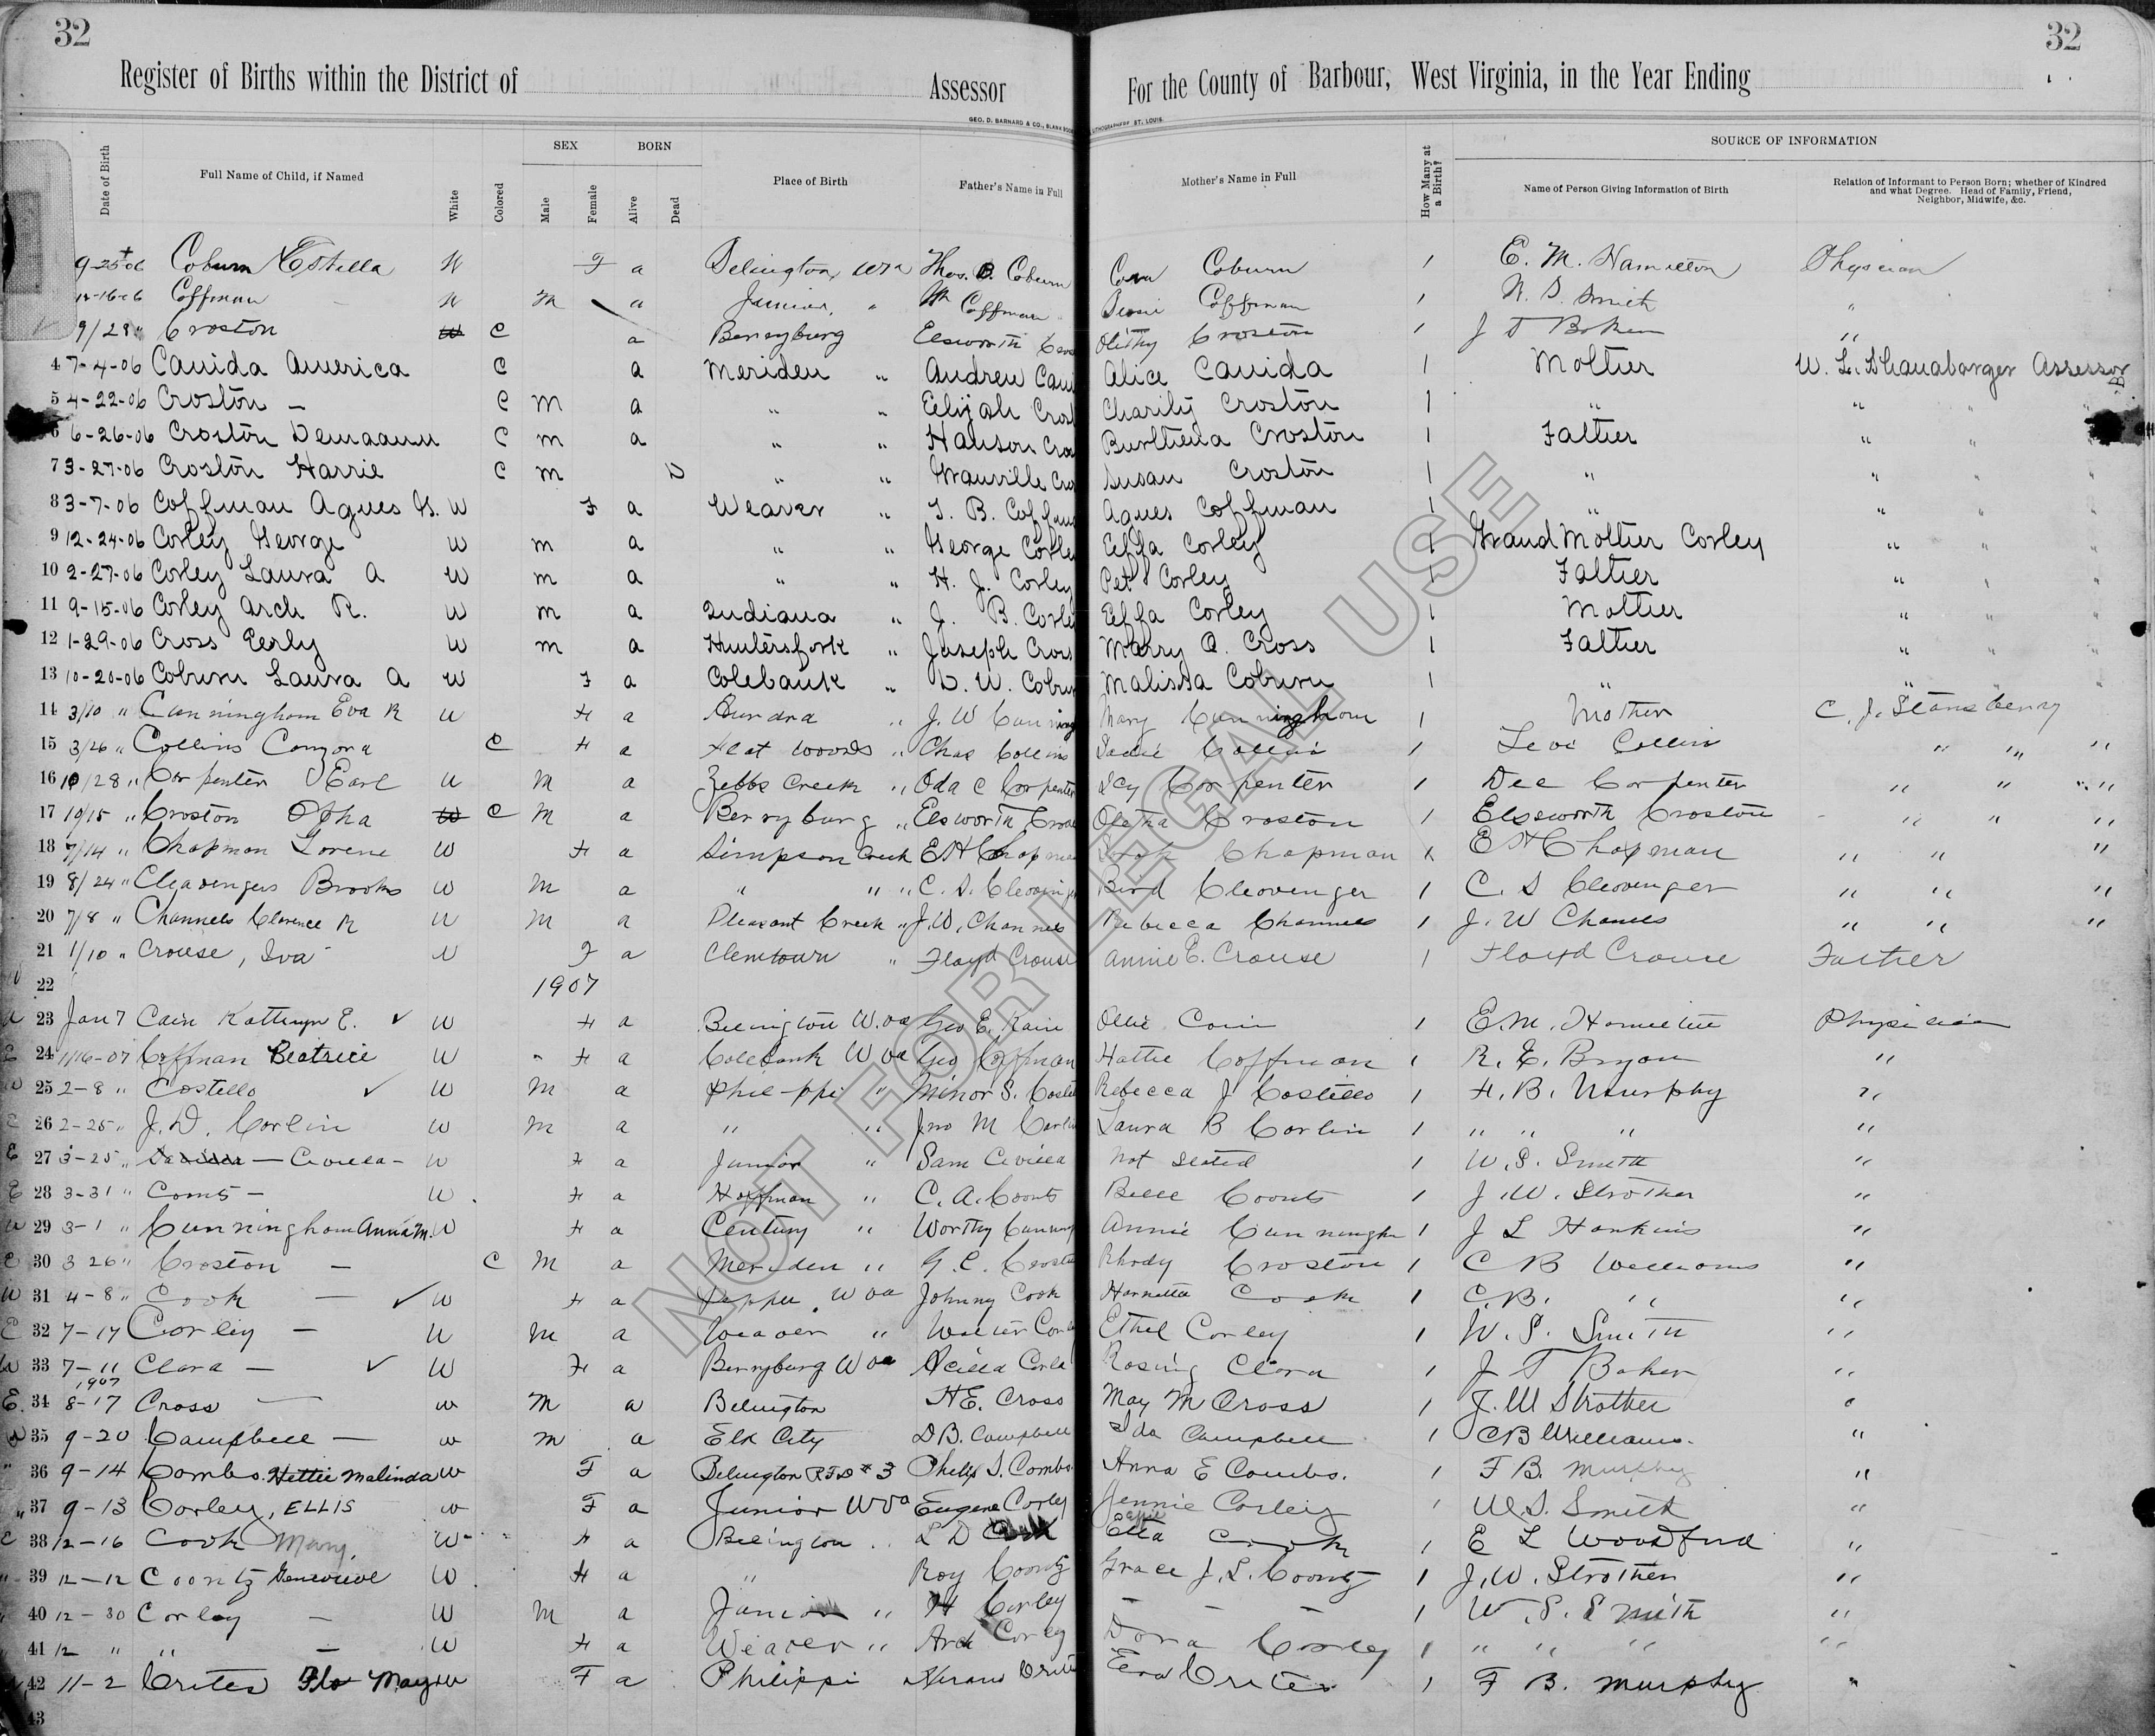 32
32
Register of Births within the District of
Assessor
For the County of Barbour, West Virginia, in the Year Ending
GEO. D. BARNARD & CO., BLANK BOOK
LITHOGRAPHERS ST. LOUIS.
Date of Birth
Full Name of Child, if Named
White
Colored
SEX
Male
Female
BORN
Alive
Dead
Place of Birth
Father's Name in Full
Mother's Name in Full
How Many at a Birth?
SOURCE OF INFORMATION
Name of Person Giving Information of Birth
Relation of Informant to Person Born; whether of Kindred
and what Degree. Head of Family, Friend,
Neighbor, Midwife, &c.
Coburn Estella W F a Belington, Wva Thos. B. Coburn Cora Coburn 1 E. M. Hamilton Physician
12-16-06 Coffman W M a Junior, " Wm Coffman Coffman 1 W. S. Smith "
9/28 " Croston W C a Berryburg Elsworth Croston 1 J T Baker "
4 7-4-06 Canida America C a Meriden " Andrew Alice Canida 1 Mother W. L. Shanabarger Assessor
5 4-22-06 Croston - C M a " " Elijah Charity Croston 1 " " " "
6 6-26-06 Croston C M a " " Hanson Croston 1 Father " " "
7 3-27-06 Croston Harrie C M D " " Granville Susan Croston 1 " " " "
8 3-7-06 Coffman Agnes G. W F a Weaver " B. Agnes Coffman 1 " " " "
9 12-24-06 Corley George W M a " " George Corley Effa Corley 1 Grand Mother Corley " " "
10 2-27-06 Corley Laura A W M a " " H. J. Corley Pet Corley 1 Father " " "
11 9-15-06 Corley Arch R. W M a Indiana " J. B. Effa Corley 1 Mother " " "
12 1-29-06 Cross Perly W M a Huntersfork " Joseph Cross Marry A. Cross 1 Father " " "
13 10-20-06 Coburn Laura A W F a Colebank " D. W. Malissa Coburn 1 " " " "
14 3/10 " Cunningham Eva R W F a " J. W Mary Cunningham 1 Mother C. J. Stansberry
15 3/26 " Collins C F a Flat Woods " Chas Collins Sadie 1 Levi Collin " " "
16 10/28 " Carpenter Earl W M a Zebbs Creek " Oda C Carpenter Icy Carpenter 1 Dee Carpenter " " "
17 10/15 " Croston W C M a Berryburg " Elsworth Oletha Croston 1 Elssworth Croston " " "
18 7/14 " Chapman Lorene W F a Simpson Creek E H Chapman 1 E H Chapman " " "
19 8/24 " Clevengers Brooks W M a " " " C. S. Bird Clevenger 1 C. S Clevenger " " "
20 7/8 " Channels Clarence R W M a Pleasant Creek " J. W. Channels Rebecca Channels 1 J. W " " "
21 1/10 " Crouse, Iva W F a Clemtown " Floyd Crouse Annie E. Crouse 1 Floyd Crouse Father
22 1907
23 Jan 7 Cain Kathryn E. ✓ W F a Belington W.va Geo E. Kain Ollie Cain 1 E. M. Hamilton Physician
24 1/16-07 Coffman Beatrice W F a Colebank W va Geo Coffman Hattie Coffman 1 R. E. Bryan "
25 2-8 " Costello ✓ W M a Philippi " Minor S. Rebecca J Costello 1 F. B. Murphy "
26 2-25 " J. D. Corlin W M a " " Jno M Laura B Corlin 1 " " " "
27 3-25 " - Civilla - W F a Junior " Sam Civilla not stated 1 W. S. Smith "
28 3-31 " - W F a Hoffman " C. A. Coonts Belle Coonts 1 J. W. Strother "
29 3-1 " Cunningham Anna M. W F a Century " Worthy Annie 1 J L Hawkins "
30 3 26 " Croston - C M a Meriden " G. C. Rhody Croston 1 C B Williams "
31 4-8 " Cook - ✓ W F a W va Johnny Cook Cook 1 C. B. " "
32 7-17 Corley - W M a Weaver " Walter Ethel Corley 1 W. S. Smith "
33 7-11 Clara - ✓ W F a Berryburg W va Clara 1 J T Baker "
1907
34 8-17 Cross W M a Belington H E. Cross May M Cross 1 J. W Strother "
35 9-20 Campbell - W M a Elk City D B. Campbell Ida Campbell 1 C B Williams. "
36 9-14 Combs. Hettie Malinda W F a Belington R F D # 3 Philip S. Combs Anna E Combs. 1 F B. Murphy "
37 9-13 Corley, ELLIS W F a Junior W Va Eugene Corley Jennie Corley 1 W. S. Smith "
38 12-16 Cook Mary, W F a Belington " L D Cook Etta Cook 1 E L Woodford "
39 12-12 Coontz Genevieve W F a " Roy Coontz Grace J. L. Coontz 1 J. W. Strother "
40 12-30 Corley - W M a Junior " H Corley - - - 1 W. S. Smith "
41 12 " " - W F a Weaver " Arch Corley Dora Corley 1 " " " "
42 11-2 Crites Flo May W F a Philippi Hiram Crites 1 F B. Murphy "
43
NOT FOR LEGAL USE